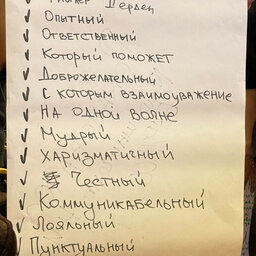 Тайлер Дерден
Опытный
Ответственный
Который поможет
Доброжелательный
С которым взаимоуважение
На одной волне
Мудрый
Харизматичный
Честный
Коммуникабельный
Лояльный
Пунктуальный